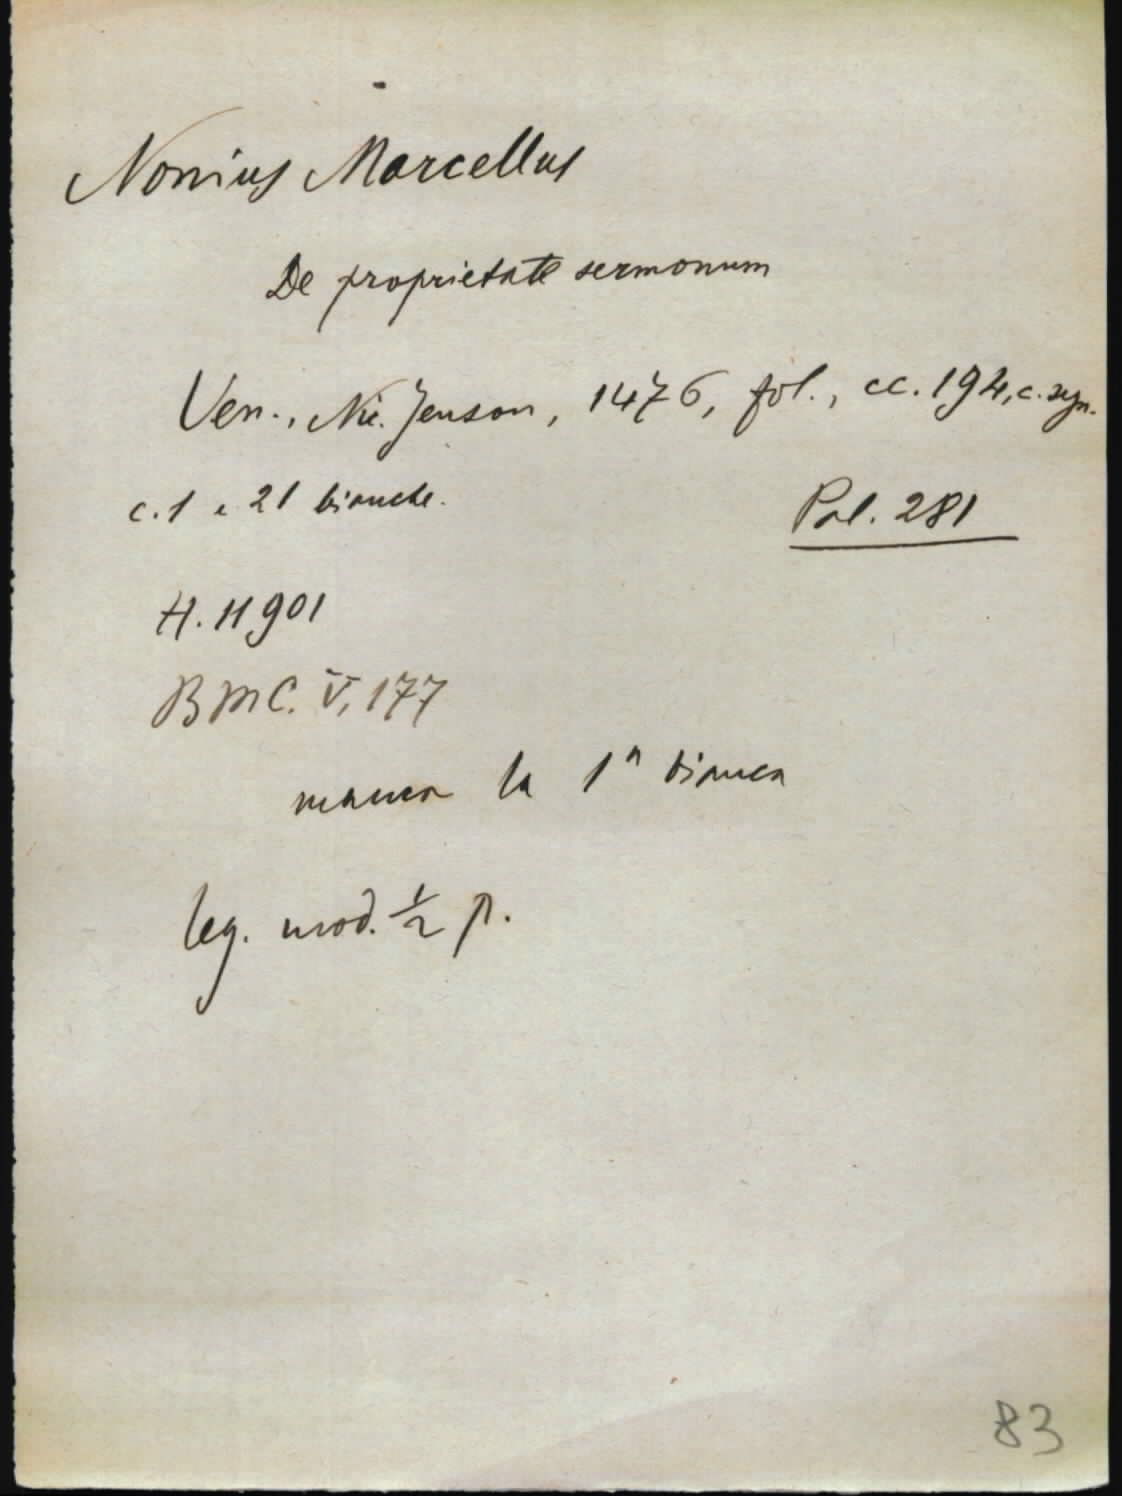 Nonius Marcellus
De proprietate sermonum
Ven., Nic. Jenson, 1476, fol., cc. 194, c. sgn.
c. 1 e 21 bianche.
Pal. 281
H. 11901
BMC. V, 177
manca la 1ª bianca
leg. mod. ½ p.
83